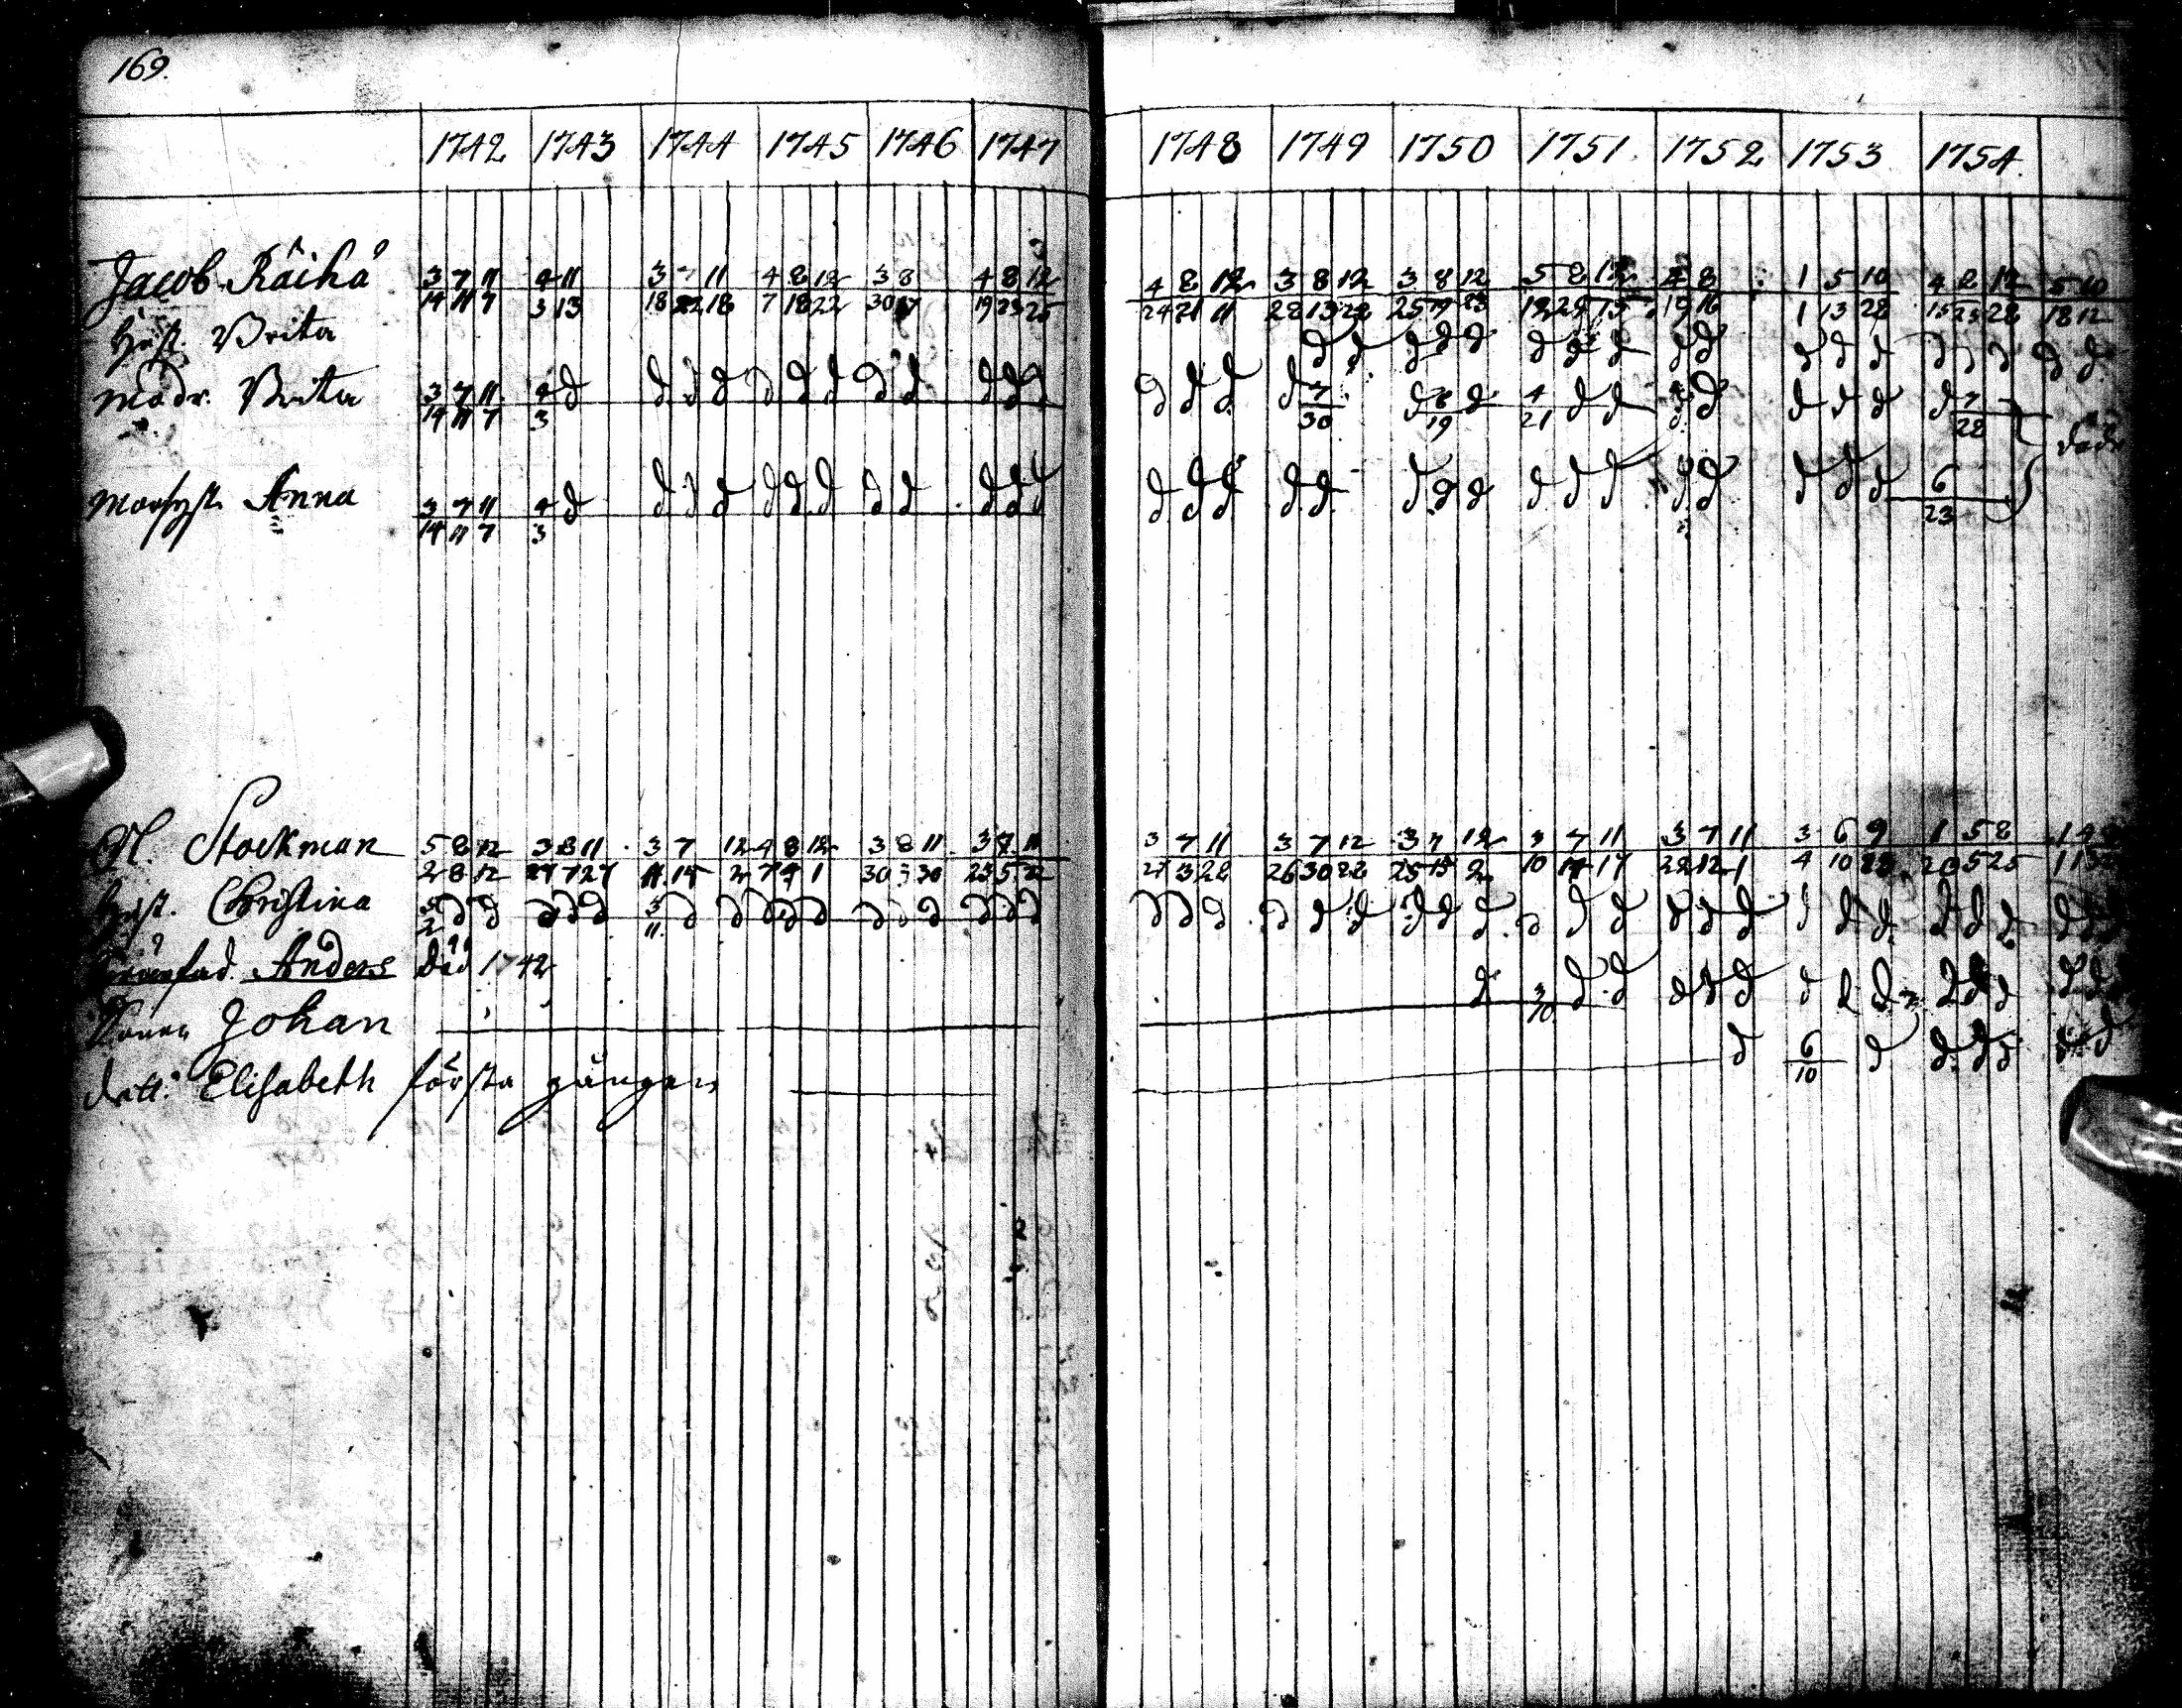 169.
1742 1743 1744 1745 1746 1747 1748 1749 1750 1751 1752 1753 1754.
Jacob Räihä 3 7 11 4 11 3 7 11 4 8 12 3 8 4 8 12 4 8 12 3 8 12 3 8 12 5 8 12 4 8 1 5 10 4 8 12 5 10
14 11 7 3 13 18 22 18 7 18 22 30 19 23 25 24 21 11 28 13 28 25 19 23 19 16 1 13 28 15 23 28 18 12
Hust. Brita d d d d d d d d d d d d d d d d d
Modr. Brita 3 7 11 4 d d d d d d d d d d d d d d d d 7 d 8 d 4 d d d d d d d d 7
14 11 7 3 30 19 21 28 död
Morsyst. Anna 3 7 11 4 d d d d d d d d d d d d d d d d d d d d d d d d d d d d 6
14 11 7 3 23
Ol. Stockman 5 8 12 3 8 11 3 7 12 4 8 12 3 8 11 3 7 11 3 7 11 3 7 12 3 7 12 3 7 11 3 7 11 3 6 9 1 5 8
2 8 12 27 7 27 11 15 2 7 9 1 30 7 30 23 5 22 27 3 28 26 30 28 25 15 2 10 14 17 22 12 1 4 10 20 5 25
Hust. Christina 5 d d d d d 3 d d d d d d d d d d d d d d d d d d d d d d d d d d d d d d d d
2 11
Anders död 1742
Sonen Johan d 3 d d d d d d d d d d d
10
dott: Elisabeth första gången d 6 d d d d
10